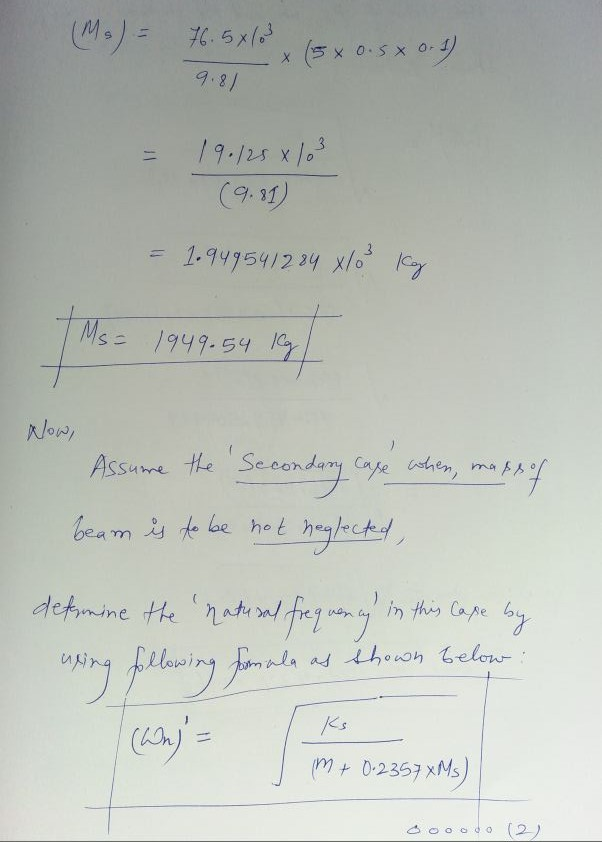 (Ms) = 76.5×10³ / 9.81 × (5 × 0.5 × 0.1)
= 19.125 ×10³ / (9.81)
= 1.949541284 ×10³ Kg
Ms = 1949.54 Kg
Now,
Assume the 'Secondary case' when, mass of
beam is to be not neglected,
determine the 'natural frequency' in this case by
using following formula as shown below:
(Wn)' = √ Ks / (m + 0.2357 ×Ms)
oooooo (2)